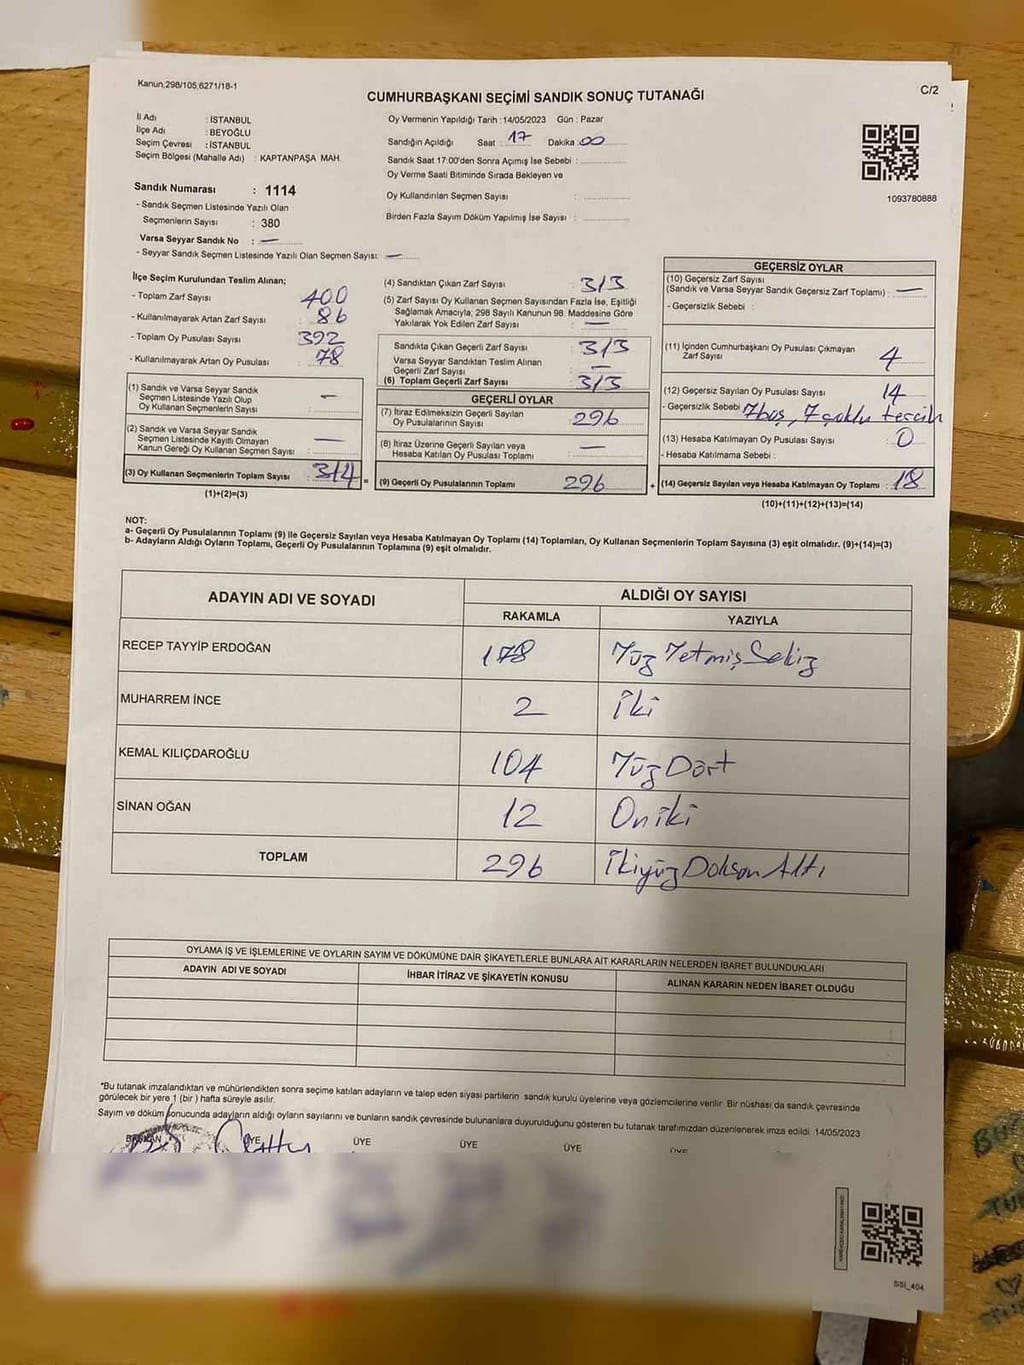 Kanun,298/105,6271/18-1
C/2
CUMHURBAŞKANI SEÇİMİ SANDIK SONUÇ TUTANAĞI
İl Adı : İSTANBUL
İlçe Adı : BEYOĞLU
Seçim Çevresi : İSTANBUL
Seçim Bölgesi (Mahalle Adı) : KAPTANPAŞA MAH.
Sandık Numarası : 1114
- Sandık Seçmen Listesinde Yazılı Olan
Seçmenlerin Sayısı : 380
Varsa Seyyar Sandık No : —
- Seyyar Sandık Seçmen Listesinde Yazılı Olan Seçmen Sayısı: —
Oy Vermenin Yapıldığı Tarih : 14/05/2023 Gün : Pazar
Sandığın Açıldığı Saat 17 Dakika : 00
Sandık Saat 17:00'den Sonra Açımış İse Sebebi :
Oy Verme Saati Bitiminde Sırada Bekleyen ve
Oy Kullandırılan Seçmen Sayısı :
Birden Fazla Sayım Döküm Yapılmış İse Sayısı :
1093780888
İlçe Seçim Kurulundan Teslim Alınan;
- Toplam Zarf Sayısı : 400
- Kullanılmayarak Artan Zarf Sayısı : 86
- Toplam Oy Pusulası Sayısı : 392
- Kullanılmayarak Artan Oy Pusulası : 78
(1) Sandık ve Varsa Seyyar Sandık
Seçmen Listesinde Yazılı Olup
Oy Kullanan Seçmenlerin Sayısı : —
(2) Sandık ve Varsa Seyyar Sandık
Seçmen Listesinde Kayıtlı Olmayan
Kanun Gereği Oy Kullanan Seçmen Sayısı : —
(3) Oy Kullanan Seçmenlerin Toplam Sayısı : 314
(1)+(2)=(3)
(4) Sandıktan Çıkan Zarf Sayısı : 313
(5) Zarf Sayısı Oy Kullanan Seçmen Sayısından Fazla İse, Eşitliği
Sağlamak Amacıyla, 298 Sayılı Kanunun 98. Maddesine Göre
Yakılarak Yok Edilen Zarf Sayısı : —
Sandıkta Çıkan Geçerli Zarf Sayısı : 313
Varsa Seyyar Sandıktan Teslim Alınan
Geçerli Zarf Sayısı : —
(6) Toplam Geçerli Zarf Sayısı : 313
GEÇERLİ OYLAR
(7) İtiraz Edilmeksizin Geçerli Sayılan
Oy Pusulalarının Sayısı : 296
(8) İtiraz Üzerine Geçerli Sayılan veya
Hesaba Katılan Oy Pusulası Toplamı : —
= (9) Geçerli Oy Pusulalarının Toplamı : 296
GEÇERSİZ OYLAR
(10) Geçersiz Zarf Sayısı
(Sandık ve Varsa Seyyar Sandık Geçersiz Zarf Toplamı) : —
- Geçersizlik Sebebi :
(11) İçinden Cumhurbaşkanı Oy Pusulası Çıkmayan
Zarf Sayısı : 4
(12) Geçersiz Sayılan Oy Pusulası Sayısı : 14
- Geçersizlik Sebebi 7 boş, 7 çoklu tercih
(13) Hesaba Katılmayan Oy Pusulası Sayısı : 0
- Hesaba Katılmama Sebebi :
+ (14) Geçersiz Sayılan veya Hesaba Katılmayan Oy Toplamı : 18
(10)+(11)+(12)+(13)=(14)
NOT:
a- Geçerli Oy Pusulalarının Toplamı (9) ile Geçersiz Sayılan veya Hesaba Katılmayan Oy Toplamı (14) Toplamları, Oy Kullanan Seçmenlerin Toplam Sayısına (3) eşit olmalıdır. (9)+(14)=(3)
b- Adayların Aldığı Oyların Toplamı, Geçerli Oy Pusulalarının Toplamına (9) eşit olmalıdır.
ADAYIN ADI VE SOYADI
ALDIĞI OY SAYISI
RAKAMLA YAZIYLA
RECEP TAYYİP ERDOĞAN 178 Yüz Yetmiş Sekiz
MUHARREM İNCE 2 İki
KEMAL KILIÇDAROĞLU 104 Yüz Dört
SİNAN OĞAN 12 Oniki
TOPLAM 296 İkiyüz Doksan Altı
OYLAMA İŞ VE İŞLEMLERİNE VE OYLARIN SAYIM VE DÖKÜMÜNE DAİR ŞİKAYETLERLE BUNLARA AİT KARARLARIN NELERDEN İBARET BULUNDUKLARI
ADAYIN ADI VE SOYADI İHBAR İTİRAZ VE ŞİKAYETİN KONUSU ALINAN KARARIN NEDEN İBARET OLDUĞU
*Bu tutanak imzalandıktan ve mühürlendikten sonra seçime katılan adayların ve talep eden siyasi partilerin sandık kurulu üyelerine veya gözlemcilerine verilir. Bir nüshası da sandık çevresinde
görülecek bir yere 1 (bir ) hafta süreyle asılır.
Sayım ve döküm sonucunda adayların aldığı oyların sayılarını ve bunların sandık çevresinde bulunanlara duyurulduğunu gösteren bu tutanak tarafımızdan düzenlenerek imza edildi. 14/05/2023
BAŞKAN ÜYE ÜYE ÜYE ÜYE ÜYE
SSİ_404